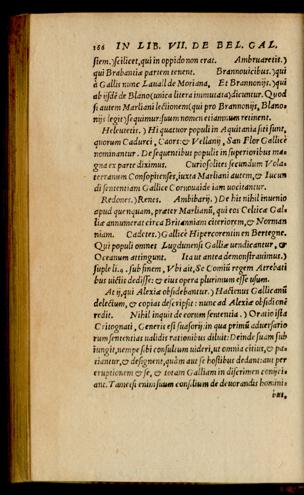 166 IN LIB. VII. DE BEL. GAL.
stem, scilicet, qui in oppido non erat. Ambruaretis.)
qui Brabantiæ partem tenent. Brannouicibus.) qui
à Gallis nunc Lanall de Moriana, Et Brannonijs.) qui
ab ijsdē de Blano (unica litera immutata) dicuntur. Quod
si autem Marliani lectionem (qui pro Brannonijs, Blano-
nijs legit) sequimur: suum nomen etiamnum retinent.
Heleutetis.) Hi quatuor populi in Aquitania siti sunt,
quorum Cadurci, Caors: & Vellanij, San Flor Gallicè
nominantur. De sequentibus populis in superioribus ma-
gna ex parte diximus. Curiosolites secundum Vola-
terranum Consopitenses, iuxta Marliani autem, & Iucun
di sententiam Gallicè Cornouaide iam uocitantur.
Redones.) Renes. Ambibarij.) De his nihil inuenio
apud quenquam, præter Marlianū, qui eos Celticæ Gal-
liæ annumerat circa Britanniam citeriorem, & Norman
niam. Cadetes.) Gallicè Hipercorentin en Bertegne.
Qui populi omnes Lugdunensi Galliæ uendicantur, &
Oceanum attingunt. Ita ut antea demonstrauimus.)
supple li.4. sub finem, Vbi ait, Se Comiū regem Atrebati
bus uictis dedisse: & eius opera plurimum esse usum.
At ij, qui Alexia obsidebantur.) Hactenus Gallicanū
delectum, & copias descripsit: nunc ad Alexiæ obsidionē
redit. Nihil inquit de eorum sententia.) Oratio ista
Critognati, Generis est suasorij. in qua primū aduersario
rum sententias ualidis rationibus diluit: Deinde suam sub
iungit, nempe sibi consultum uideri, ut omnia citius, & pa-
riantur, & designent, quàm aut se hostibus dedant: aut per
eruptionem & se, & totam Galliam in discrimen conijci-
ant. Tametsi enim suum consilium de deuorandis homini
bus,